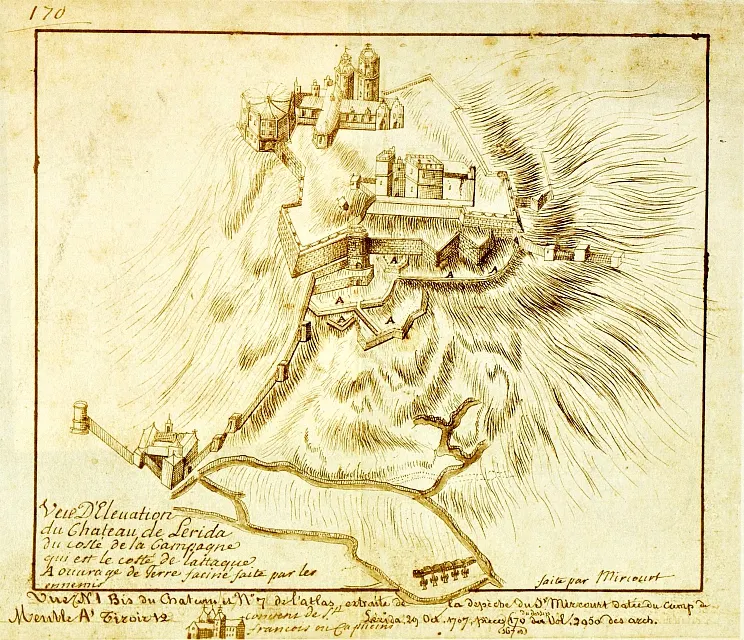 170
A
A
A
A
A
A
Veue D'Elevation
du Chateau de Lerida
du costé de la Campagne
qui est le costé de lattaque
A ouvrage de terre facine faite par les
ennemis
faite par Mircourt
Vüe N° 1 Bis du Chateau N° 7 de l'atlas, extraite de la depêche du Sr Mircourt datée du Camp de
Meuble A' Tiroir 12 convent de Lerida, 29 Oct. 1707, pièce 170 du Vol. 2050 des arch.
francois ou Capucins